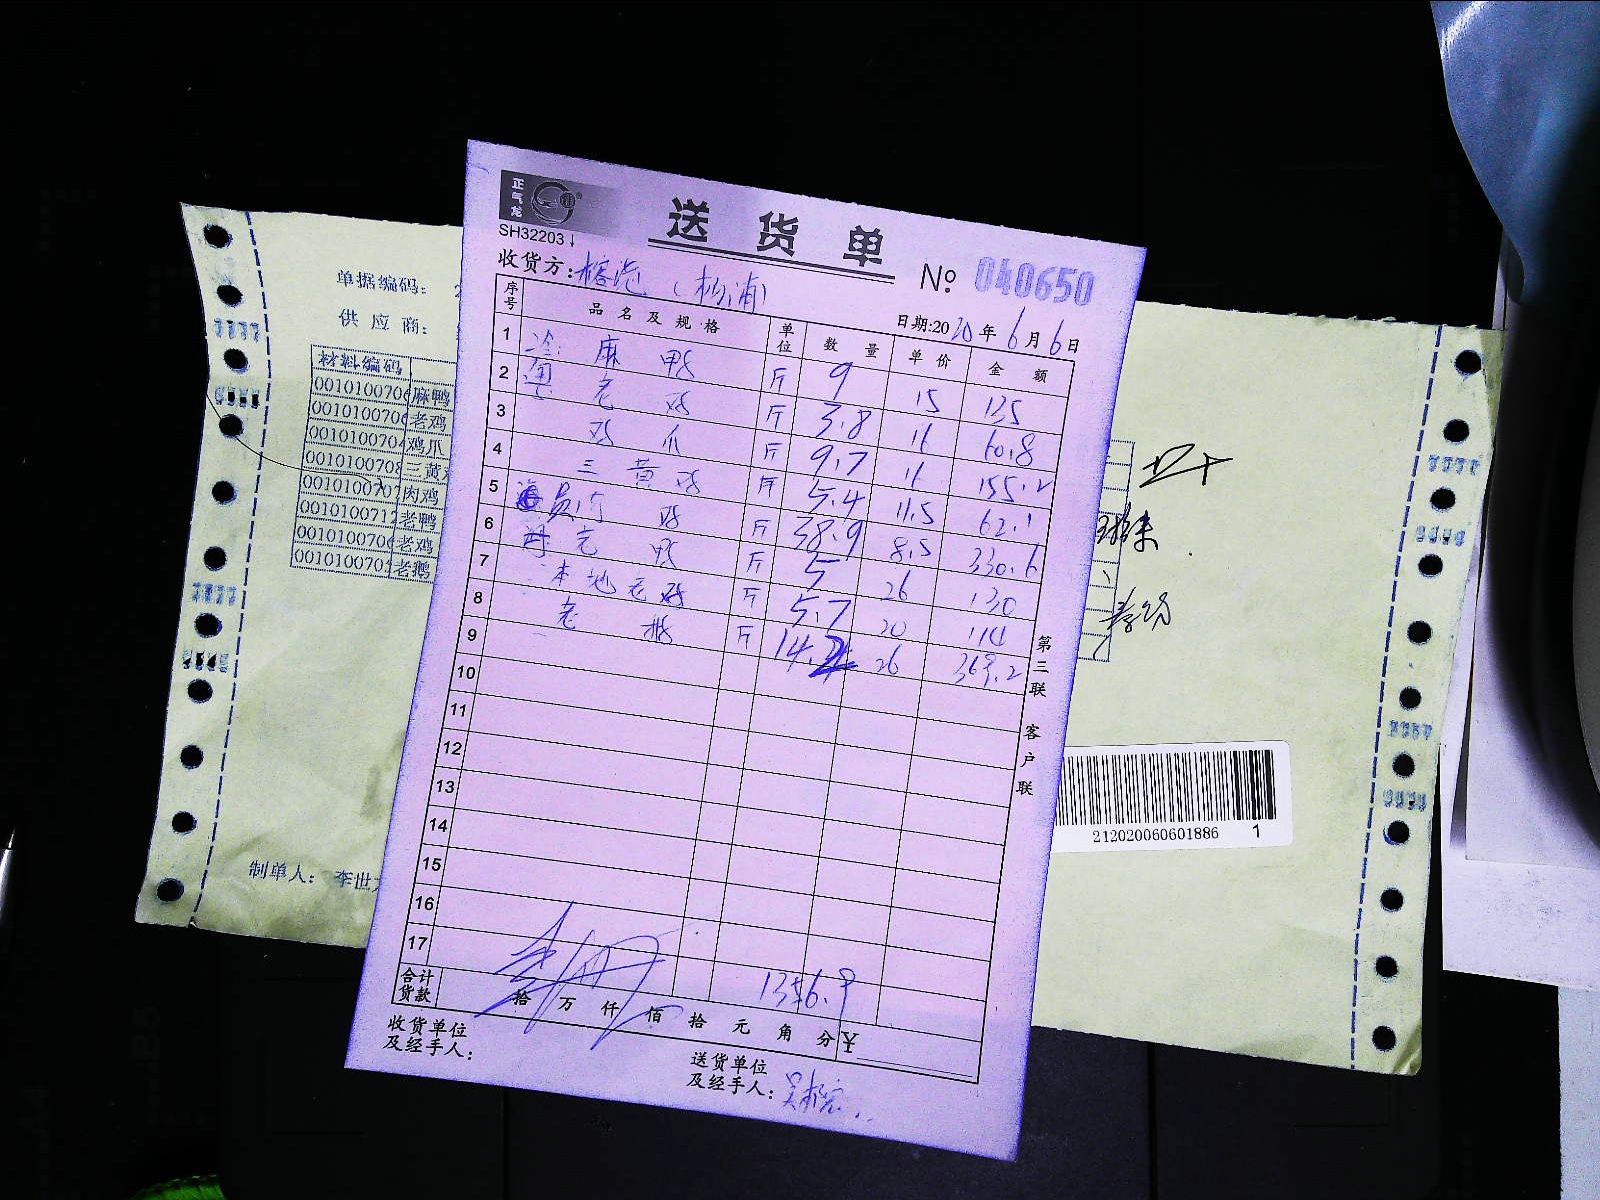 正气龙
SH32203
送货单
№ 040650
收货方: 榕港 (杨浦)
日期:2020年6月6日
序号 品名及规格 单位 数量 单价 金额
1 冷 麻鸭 斤 9 15 135
2 老鸡 斤 3.8 16 60.8
3 鸡爪 斤 9.7 16 155.2
4 三黄鸡 斤 5.4 11.5 62.1
5 肉鸡 斤 38.9 8.5 330.6
6 老鸭 斤 5 26 130
7 本地老鸡 斤 5.7 20 114
8 老鹅 斤 14.2 26 369.2
9
10
11
12
13
14
15
16
17
合计货款 拾万仟佰拾元角分 ¥ 1356.9
收货单位及经手人:
送货单位及经手人:
第三联 客户联
单据编码:
供应商:
材料编码
00101007 麻鸭
00101007 老鸡
00101007 鸡爪
00101007 三黄
00101007 肉鸡
00101007 老鸭
00101007 老鸡
00101007 老鹅
制单人: 李世
212020060601886 1